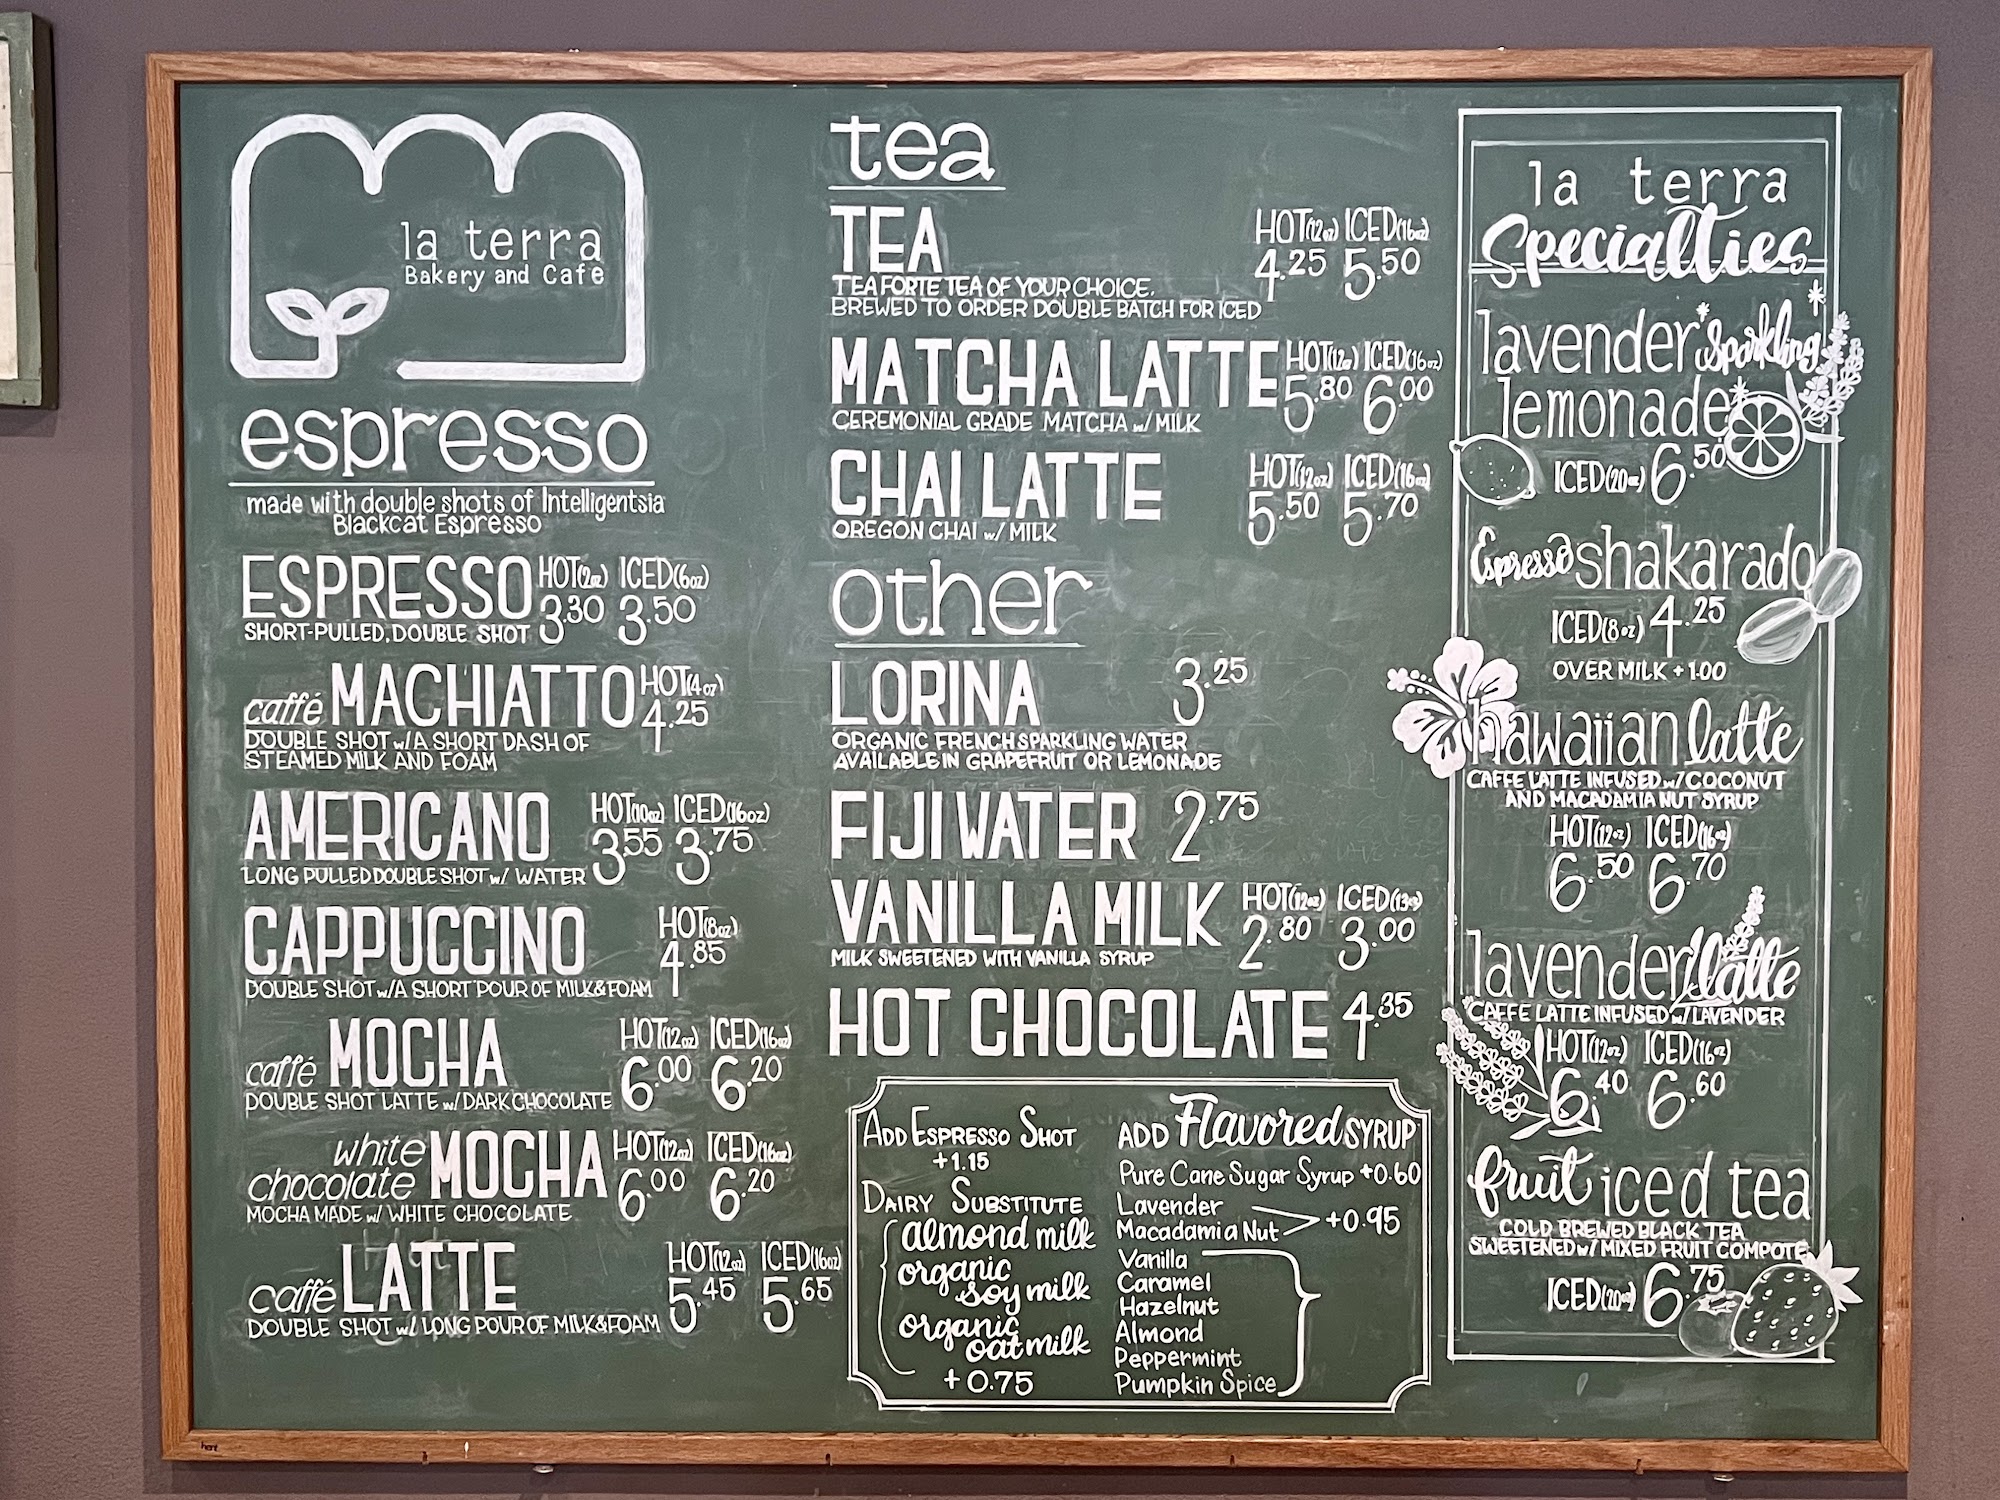 la terra
Bakery and Cafe
espresso
made with double shots of Intelligentsia
Blackcat Espresso
ESPRESSO HOT(2oz) ICED(6oz)
3.30 3.50
SHORT-PULLED, DOUBLE SHOT
caffé MACHIATTO HOT(4oz)
4.25
DOUBLE SHOT w/A SHORT DASH OF
STEAMED MILK AND FOAM
AMERICANO HOT(10oz) ICED(16oz)
3.55 3.75
LONG PULLED DOUBLE SHOT w/ WATER
CAPPUCCINO HOT(8oz)
4.85
DOUBLE SHOT w/A SHORT POUR OF MILK&FOAM
caffé MOCHA HOT(12oz) ICED(16oz)
6.00 6.20
DOUBLE SHOT LATTE w/DARK CHOCOLATE
white
chocolate MOCHA HOT(12oz) ICED(16oz)
6.00 6.20
MOCHA MADE w/ WHITE CHOCOLATE
caffé LATTE HOT(12oz) ICED(16oz)
5.45 5.65
DOUBLE SHOT w/ LONG POUR OF MILK&FOAM
tea
TEA HOT(12oz) ICED(16oz)
4.25 5.50
TEA FORTE TEA OF YOUR CHOICE.
BREWED TO ORDER DOUBLE BATCH FOR ICED
MATCHA LATTE HOT(12oz) ICED(16oz)
5.80 6.00
CEREMONIAL GRADE MATCHA w/ MILK
CHAI LATTE HOT(12oz) ICED(16oz)
5.50 5.70
OREGON CHAI w/ MILK
other
LORINA 3.25
ORGANIC FRENCH SPARKLING WATER
AVAILABLE IN GRAPEFRUIT OR LEMONADE
FIJI WATER 2.75
VANILLA MILK HOT(12oz) ICED(13oz)
2.80 3.00
MILK SWEETENED WITH VANILLA SYRUP
HOT CHOCOLATE 4.35
ADD ESPRESSO SHOT
+1.15
DAIRY SUBSTITUTE
almond milk
organic
soy milk
organic
oat milk
+0.75
ADD Flavored SYRUP
Pure Cane Sugar Syrup +0.60
Lavender
Macadamia Nut +0.95
Vanilla
Caramel
Hazelnut
Almond
Peppermint
Pumpkin Spice
la terra
Specialties
lavender Sparkling
lemonade
ICED(20oz) 6.50
Espresso shakarado
ICED(8oz) 4.25
OVER MILK +1.00
hawaiian latte
CAFFE LATTE INFUSED w/ COCONUT
AND MACADAMIA NUT SYRUP
HOT(12oz) ICED(16oz)
6.50 6.70
lavender latte
CAFFE LATTE INFUSED w/ LAVENDER
HOT(12oz) ICED(16oz)
6.40 6.60
fruit iced tea
COLD BREWED BLACK TEA
SWEETENED w/ MIXED FRUIT COMPOTE
ICED(20oz) 6.75